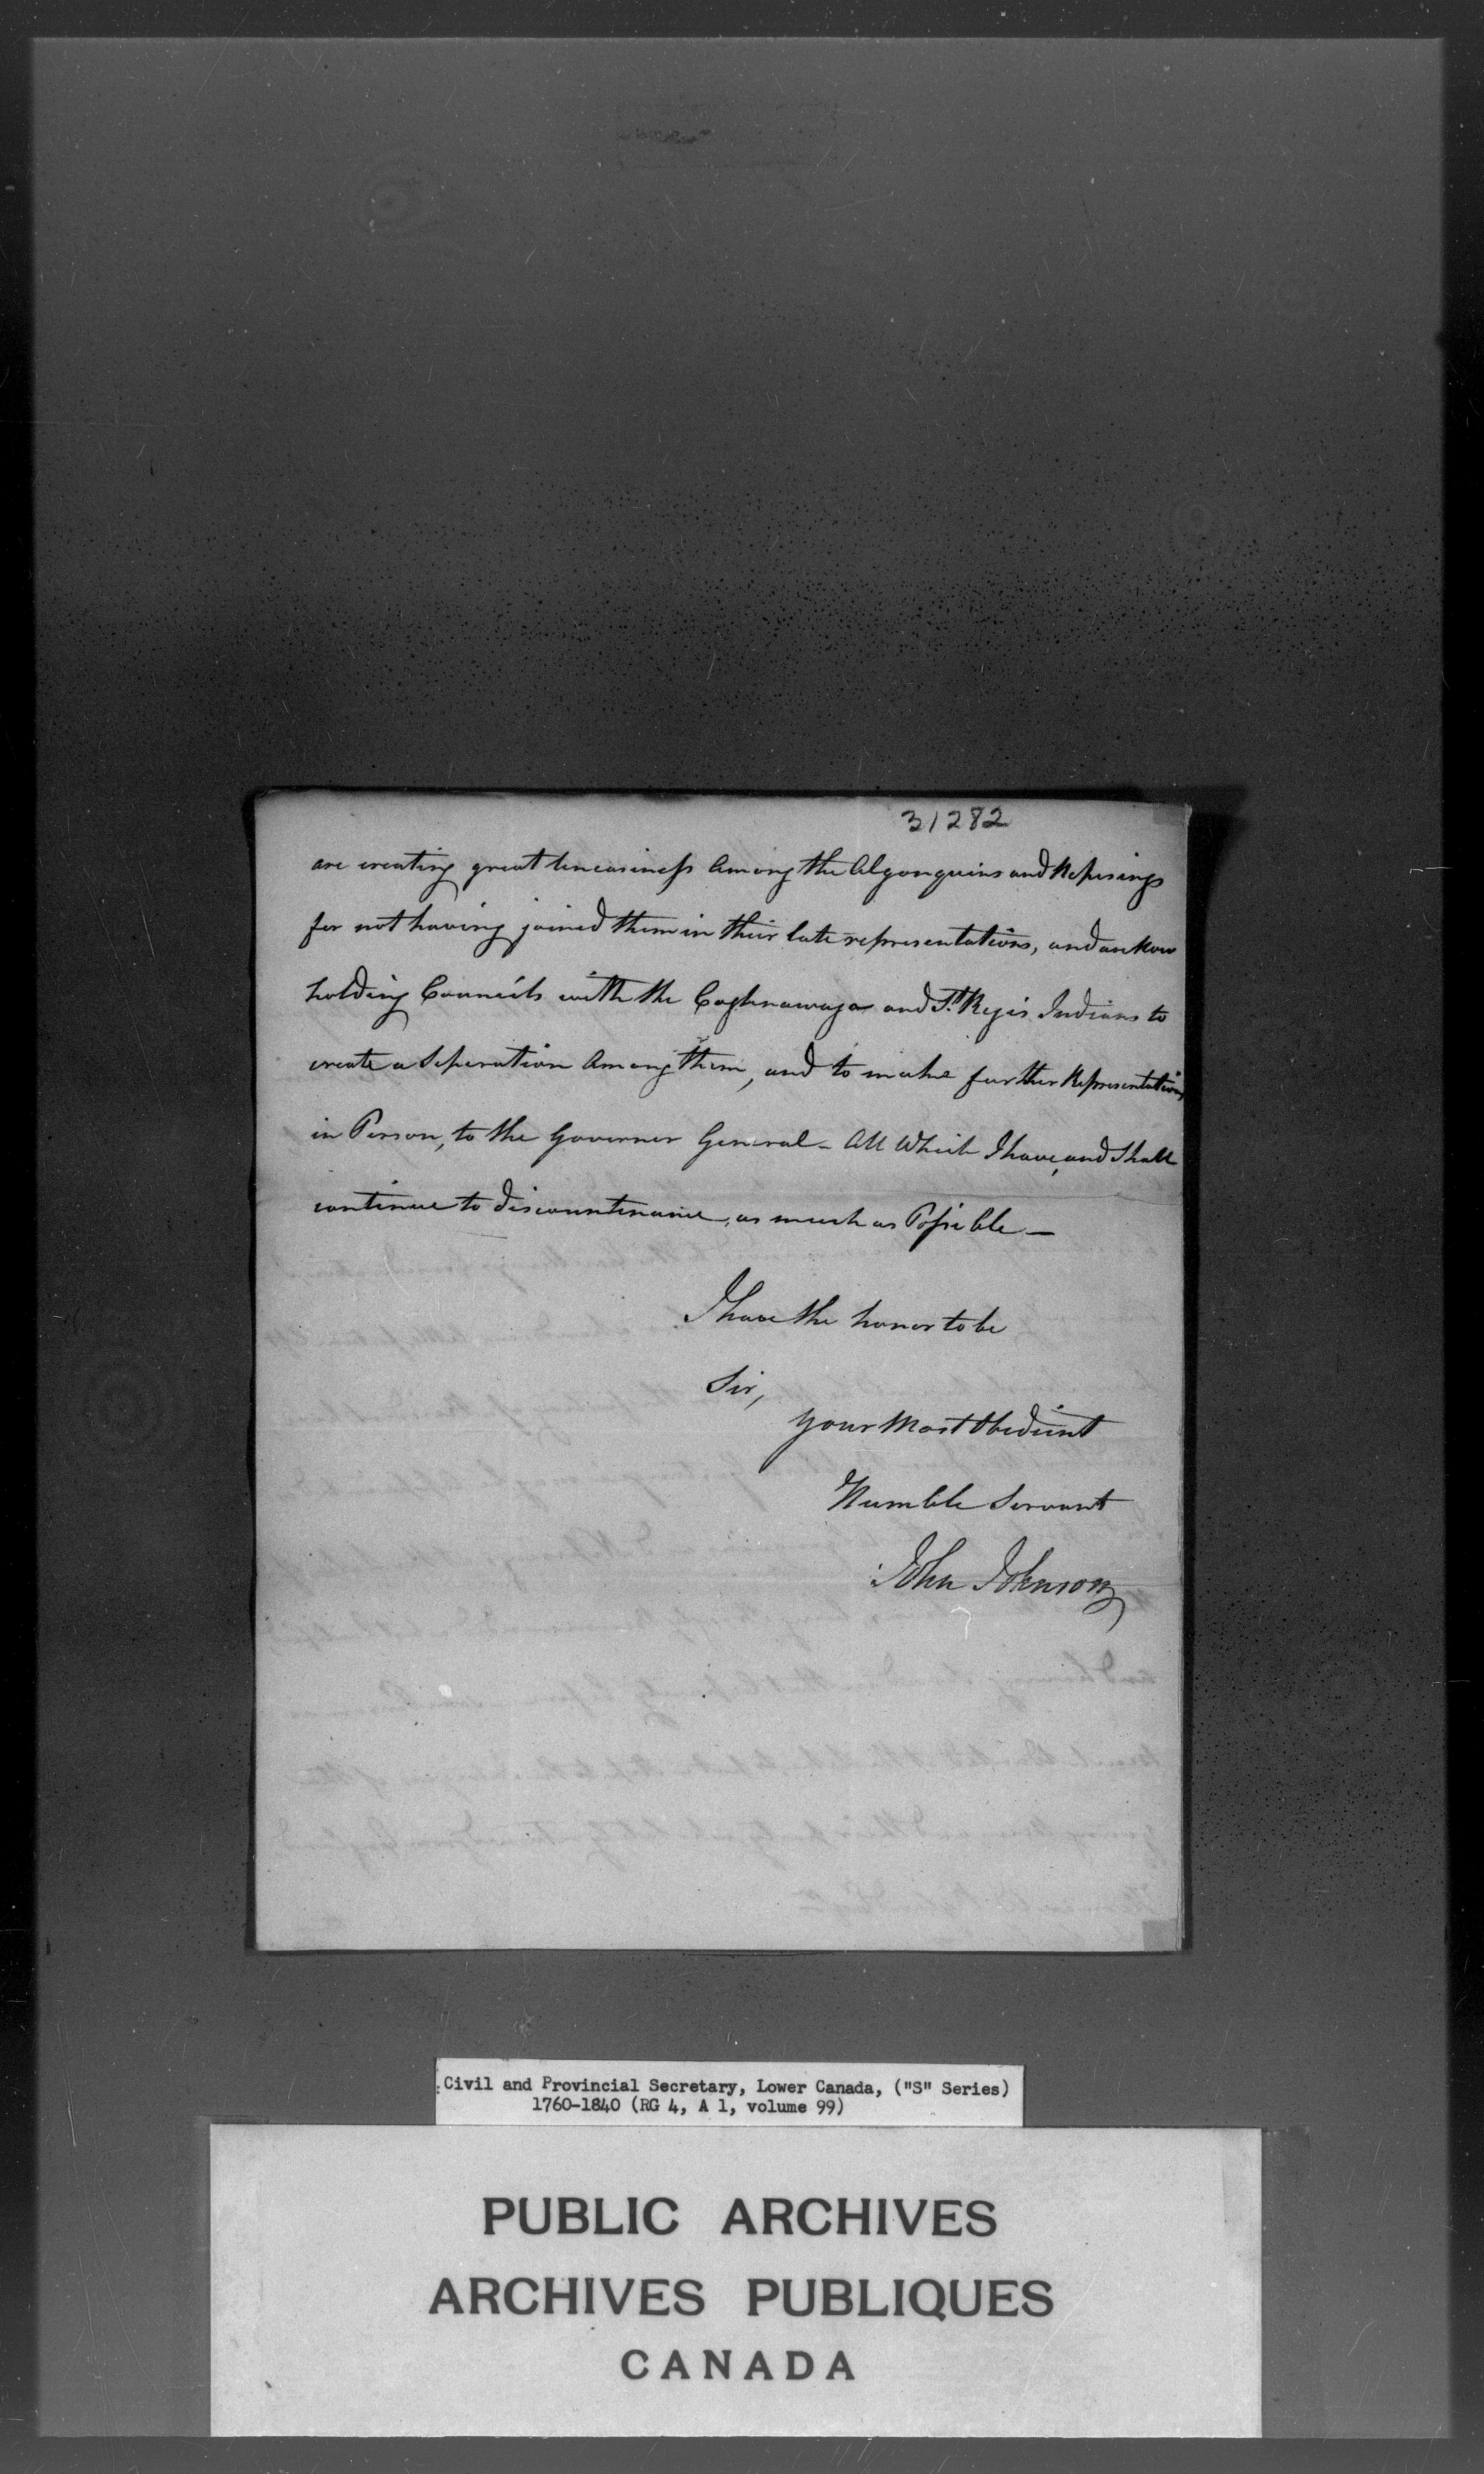 31282
are creating great Uneasiness Among the Algonquins and Nepisings
for not having joined them in their late representations, and are Now
holding Councils with the Caghnawaga and St. Regis Indians to
create a Seperation Among them, and to make further Representations
in Person, to the Governor General - All Which I have, and Shall
continue to discountenance, as much as Possible —
I have the honor to be
Sir,
Your Most Obedient
Humble Servant
John Johnson
Civil and Provincial Secretary, Lower Canada, ("S" Series)
1760-1840 (RG 4, A 1, volume 99)
PUBLIC ARCHIVES
ARCHIVES PUBLIQUES
CANADA